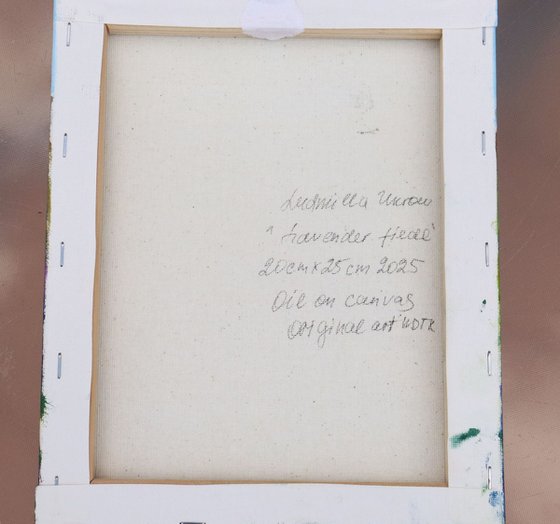 Ludmilla Ukrow
"Lavender field"
20cm x 25cm 2025
Oil on canvas
Original art